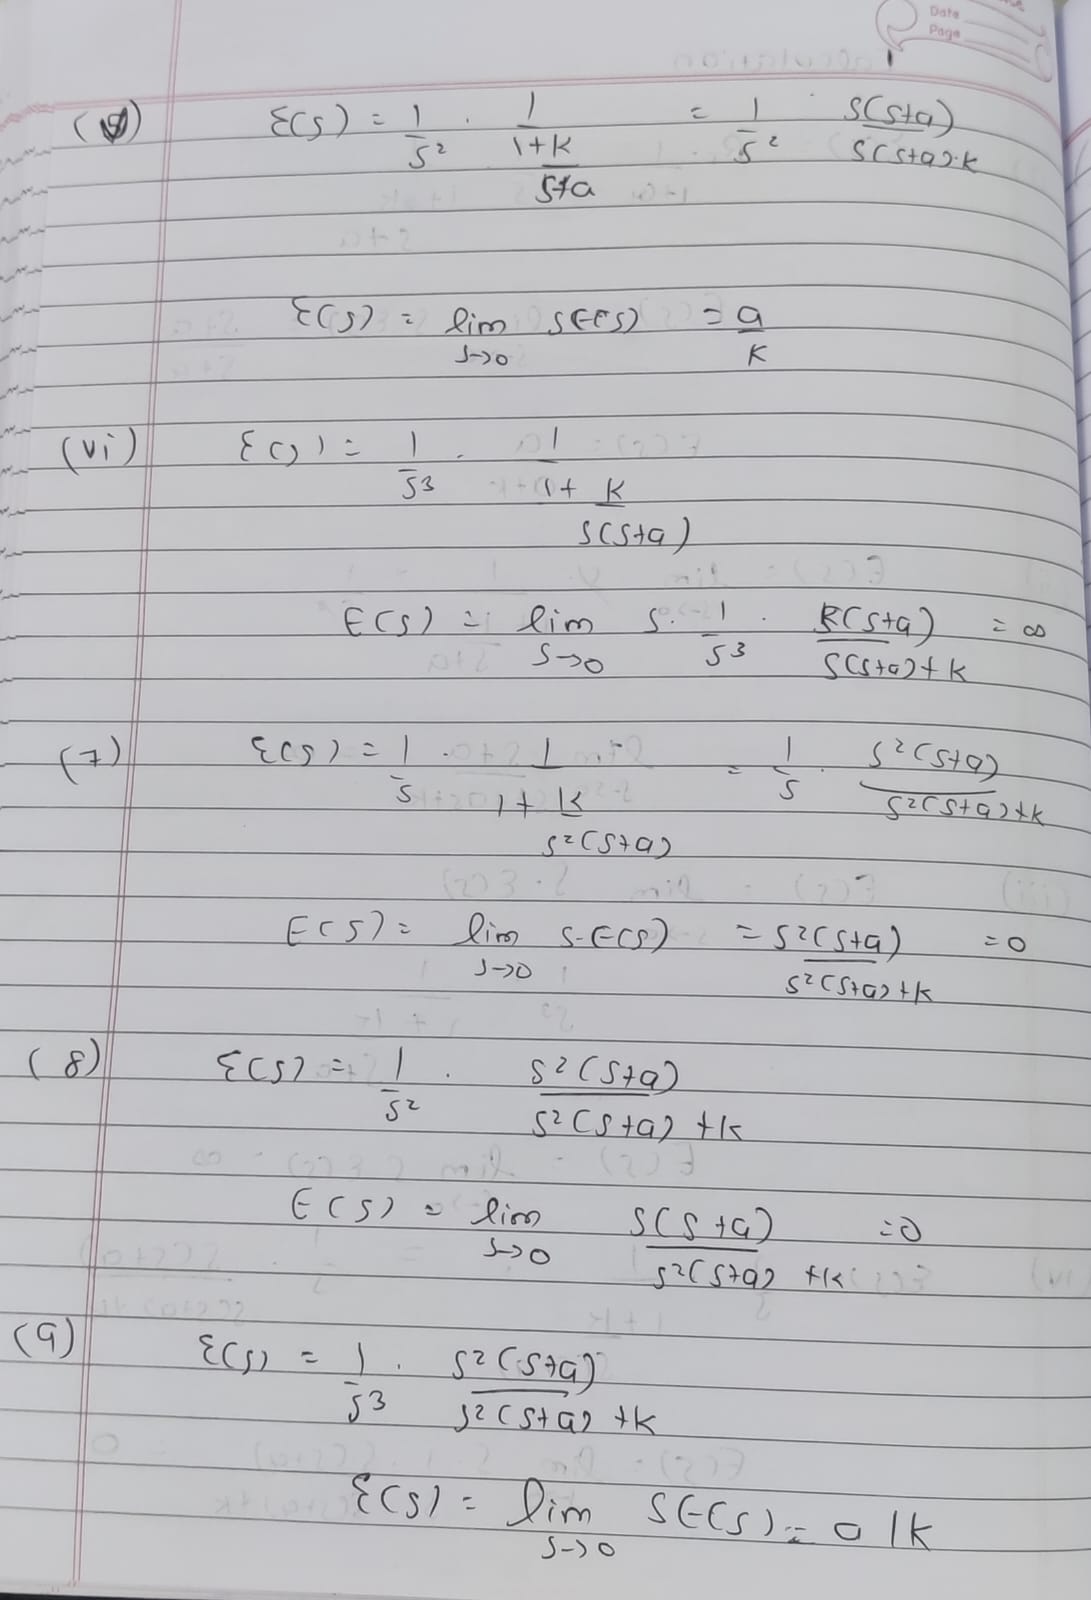 Date
Page
(v) E(s) = 1/s² · 1/(1+k/(s+a)) = 1/s² s(s+a)/(s(s+a)·k)
E(s) = lim s→0 SE(s) = a/k
(vi) E(s) = 1/s³ · 1/(1+ k/(s(s+a)))
E(s) = lim s→0 s · 1/s³ · (s+a)/(s(s+a)+k) = ∞
(7) E(s) = 1/s · 1/(1+ k/(s²(s+a))) = 1/s · s²(s+a)/(s²(s+a)+k)
E(s) = lim s→0 s·E(s) = s²(s+a)/(s²(s+a)+k) = 0
(8) E(s) = 1/s² · s²(s+a)/(s²(s+a)+k)
E(s) = lim s→0 s(s+a)/(s²(s+a)+k) = 0
(9) E(s) = 1/s³ · s²(s+a)/(s²(s+a)+k)
E(s) = lim s→0 SE(s) = a/k